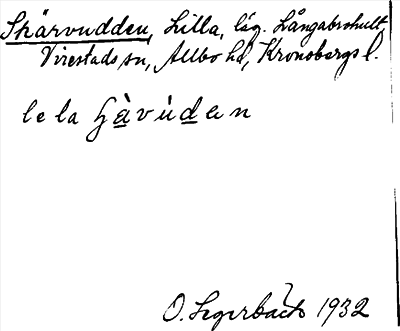 Skärvudden, Lilla, läg. Långabrohult,
Virestads sn, Allbo hd, Kronobergs l.
lela ʃà̱vúḏen
O. Segerbäck 1932